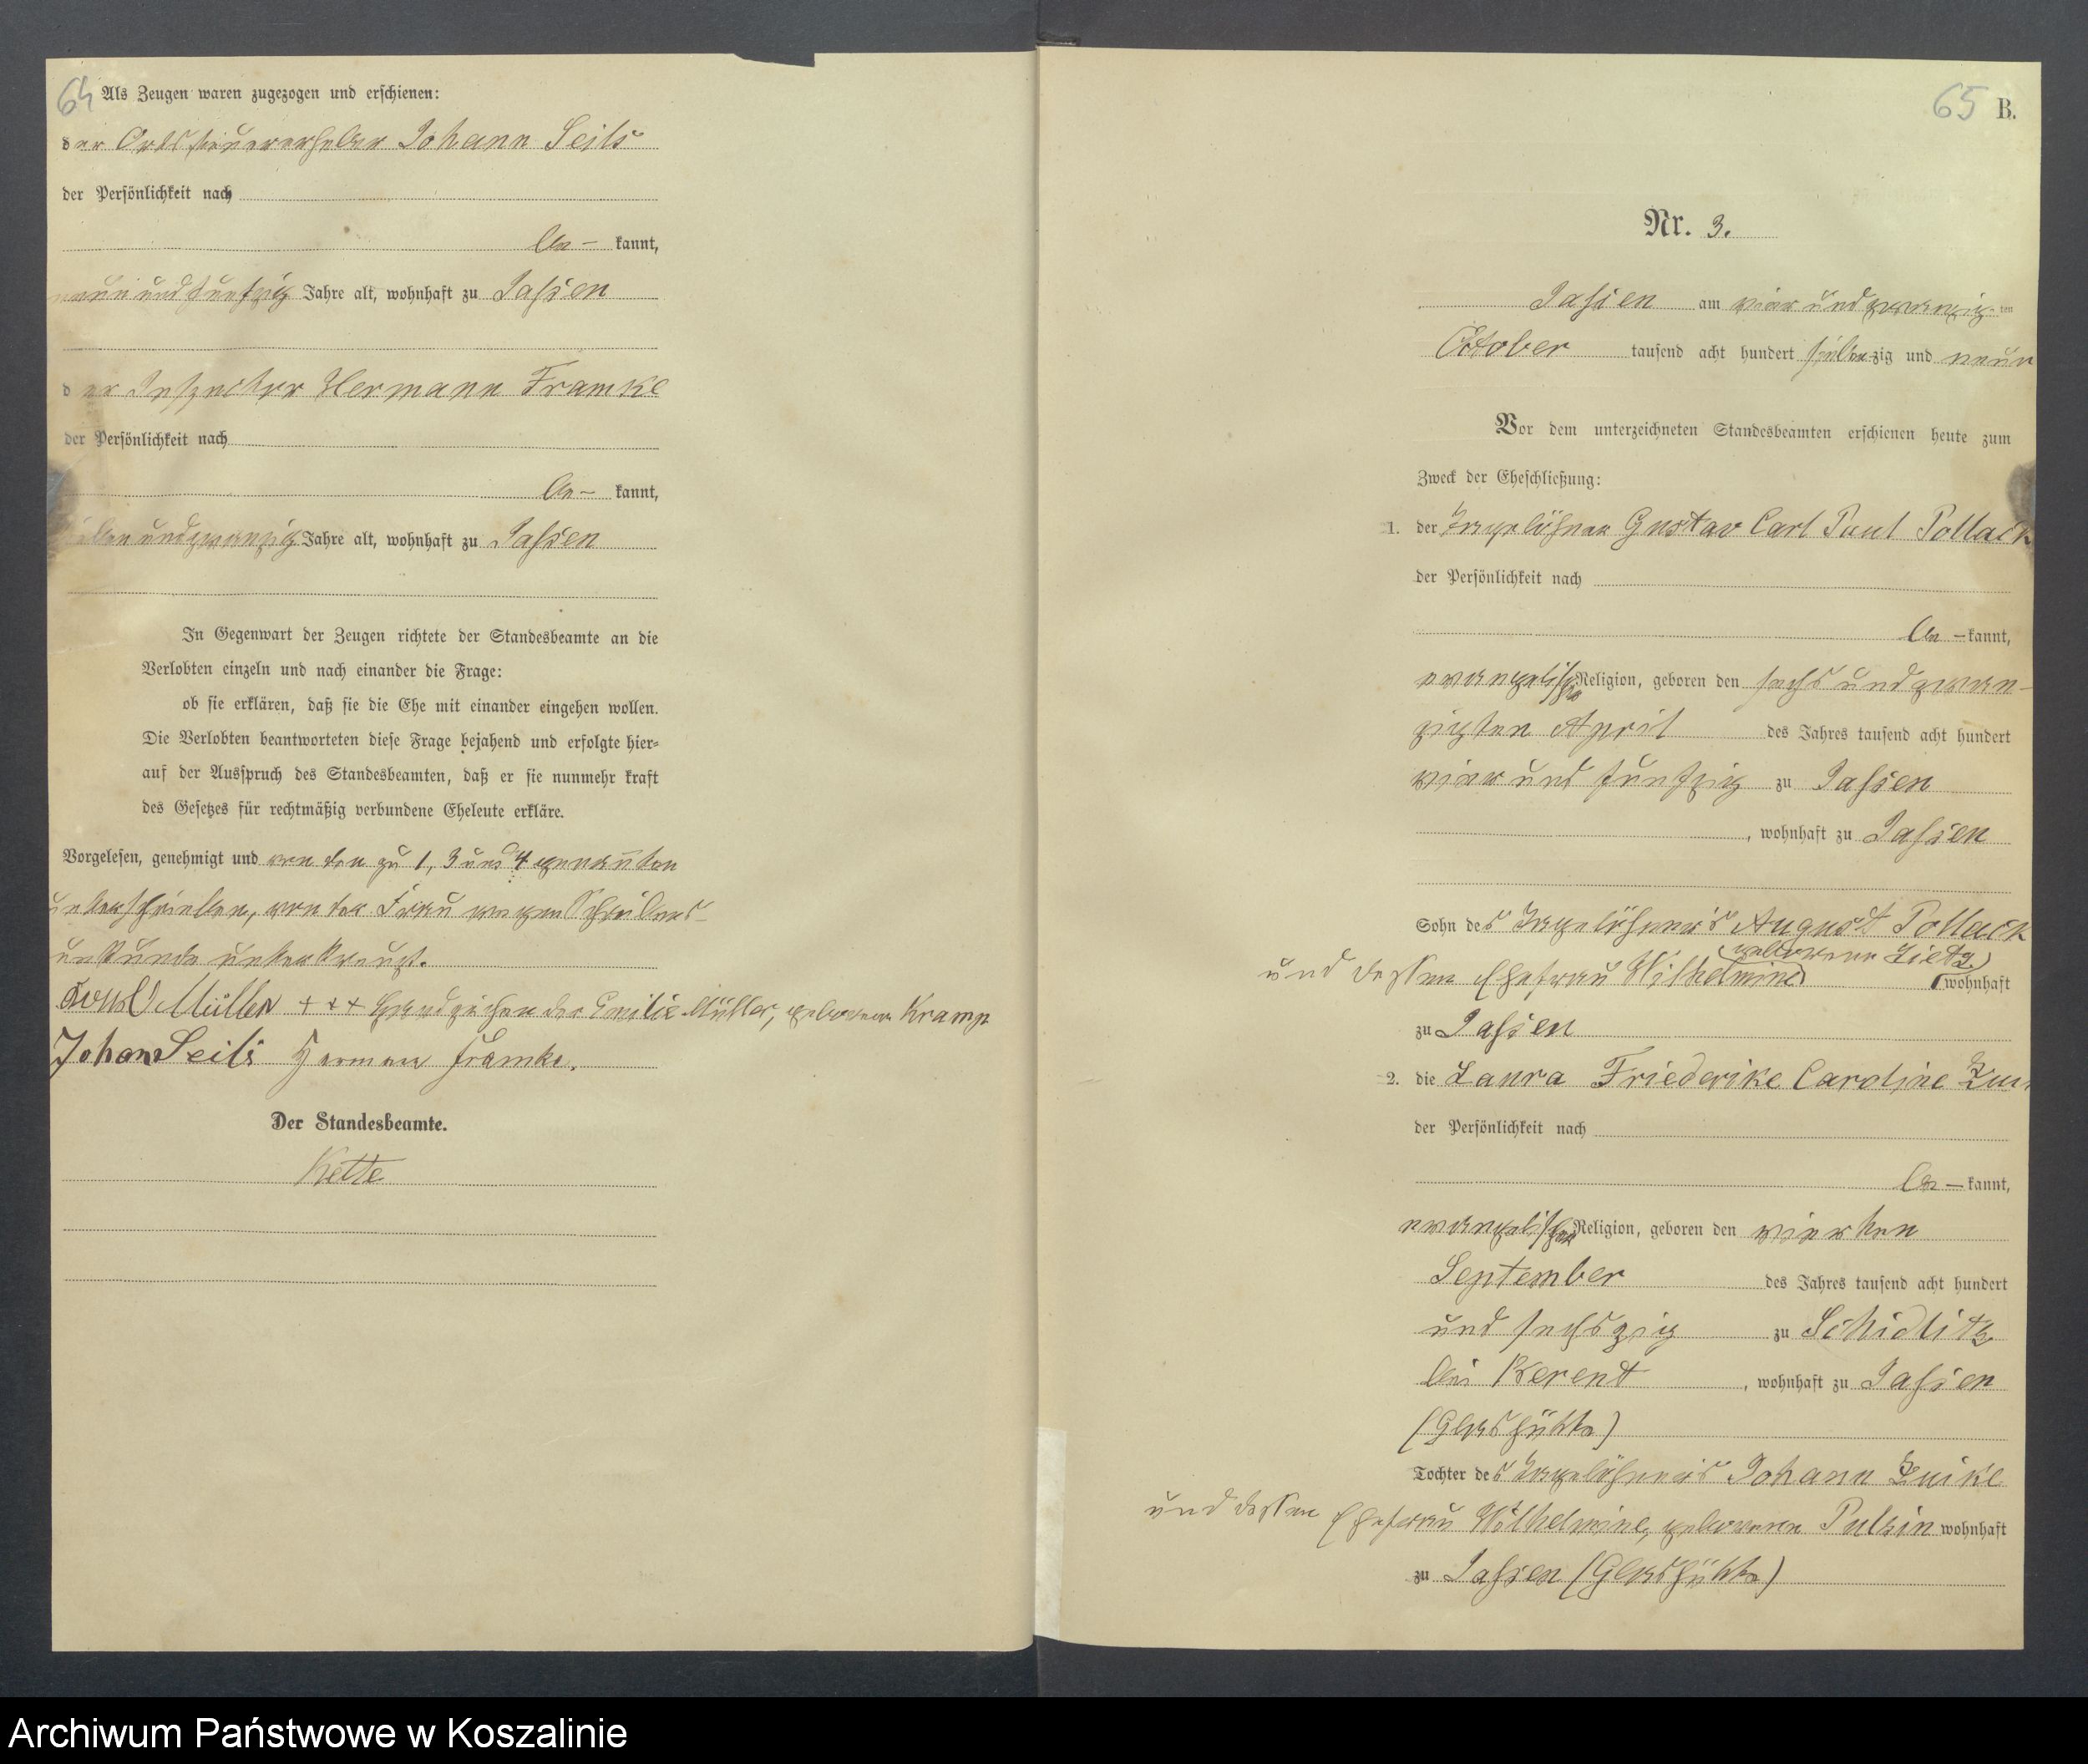 64
Als Zeugen waren zugezogen und erschienen:
der Ortssteuererheber Johann Seils
der Persönlichkeit nach
be- kannt,
neun und funfzig Jahre alt, wohnhaft zu Jassen
der Inspector Hermann Framke
der Persönlichkeit nach
be- kannt,
sieben und zwanzig Jahre alt, wohnhaft zu Jassen
In Gegenwart der Zeugen richtete der Standesbeamte an die
Verlobten einzeln und nach einander die Frage:
ob sie erklären, daß sie die Ehe mit einander eingehen wollen.
Die Verlobten beantworteten diese Frage bejahend und erfolgte hier-
auf der Ausspruch des Standesbeamten, daß er sie nunmehr kraft
des Gesetzes für rechtmäßig verbundene Eheleute erkläre.
Vorgelesen, genehmigt und von den zu 1, 3 und 4 genannten
unterschrieben, von der Frau wegen Schreibens-
unkunde unterkreuzt.
Müller + + + Handzeichen der Emilie Müller, geborene Kramp
Johann Seils Herman Framke.
Der Standesbeamte.
Kette
65 B.
Nr. 3.
Jassen am vier und zwanzig ten
October tausend acht hundert siebenzig und neun
Vor dem unterzeichneten Standesbeamten erschienen heute zum
Zweck der Eheschließung:
1. der Tagelöhner Gustav Carl Paul Pollack
der Persönlichkeit nach
be - kannt,
evangelischer Religion, geboren den sechs und zwan-
zigsten April des Jahres tausend acht hundert
vier und funfzig zu Jassen
, wohnhaft zu Jassen
Sohn des Tagelöhners August Pollack
und dessen Ehefrau Wilhelmine geborene Zietz wohnhaft
zu Jassen
2. die Laura Friederike Caroline
der Persönlichkeit nach
be - kannt,
evangelischer Religion, geboren den vierten
September des Jahres tausend acht hundert
und sechszig zu Schidlitz
bei Berent , wohnhaft zu Jassen
(Glashütte)
Tochter des Tagelöhners Johann
und dessen Ehefrau Wilhelmine, geborene Pulsin wohnhaft
zu Jassen (Glashütte)
Archiwum Państwowe w Koszalinie